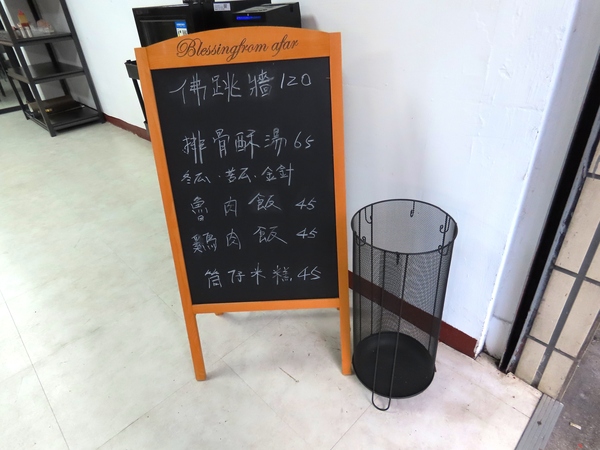 Blessingfrom afar
佛跳牆 120
排骨酥湯 65
冬瓜．苦瓜．金針
魯肉飯 45
雞肉飯 45
筒仔米糕 45